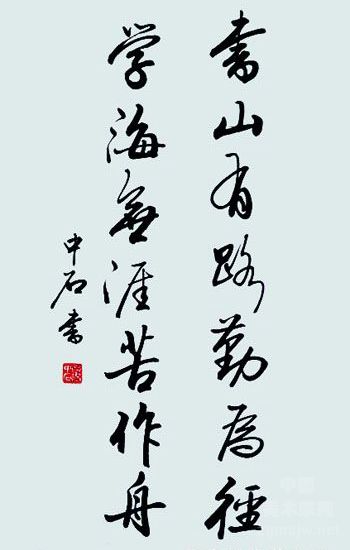 書山有路勤為徑
学海無涯苦作舟
中石書